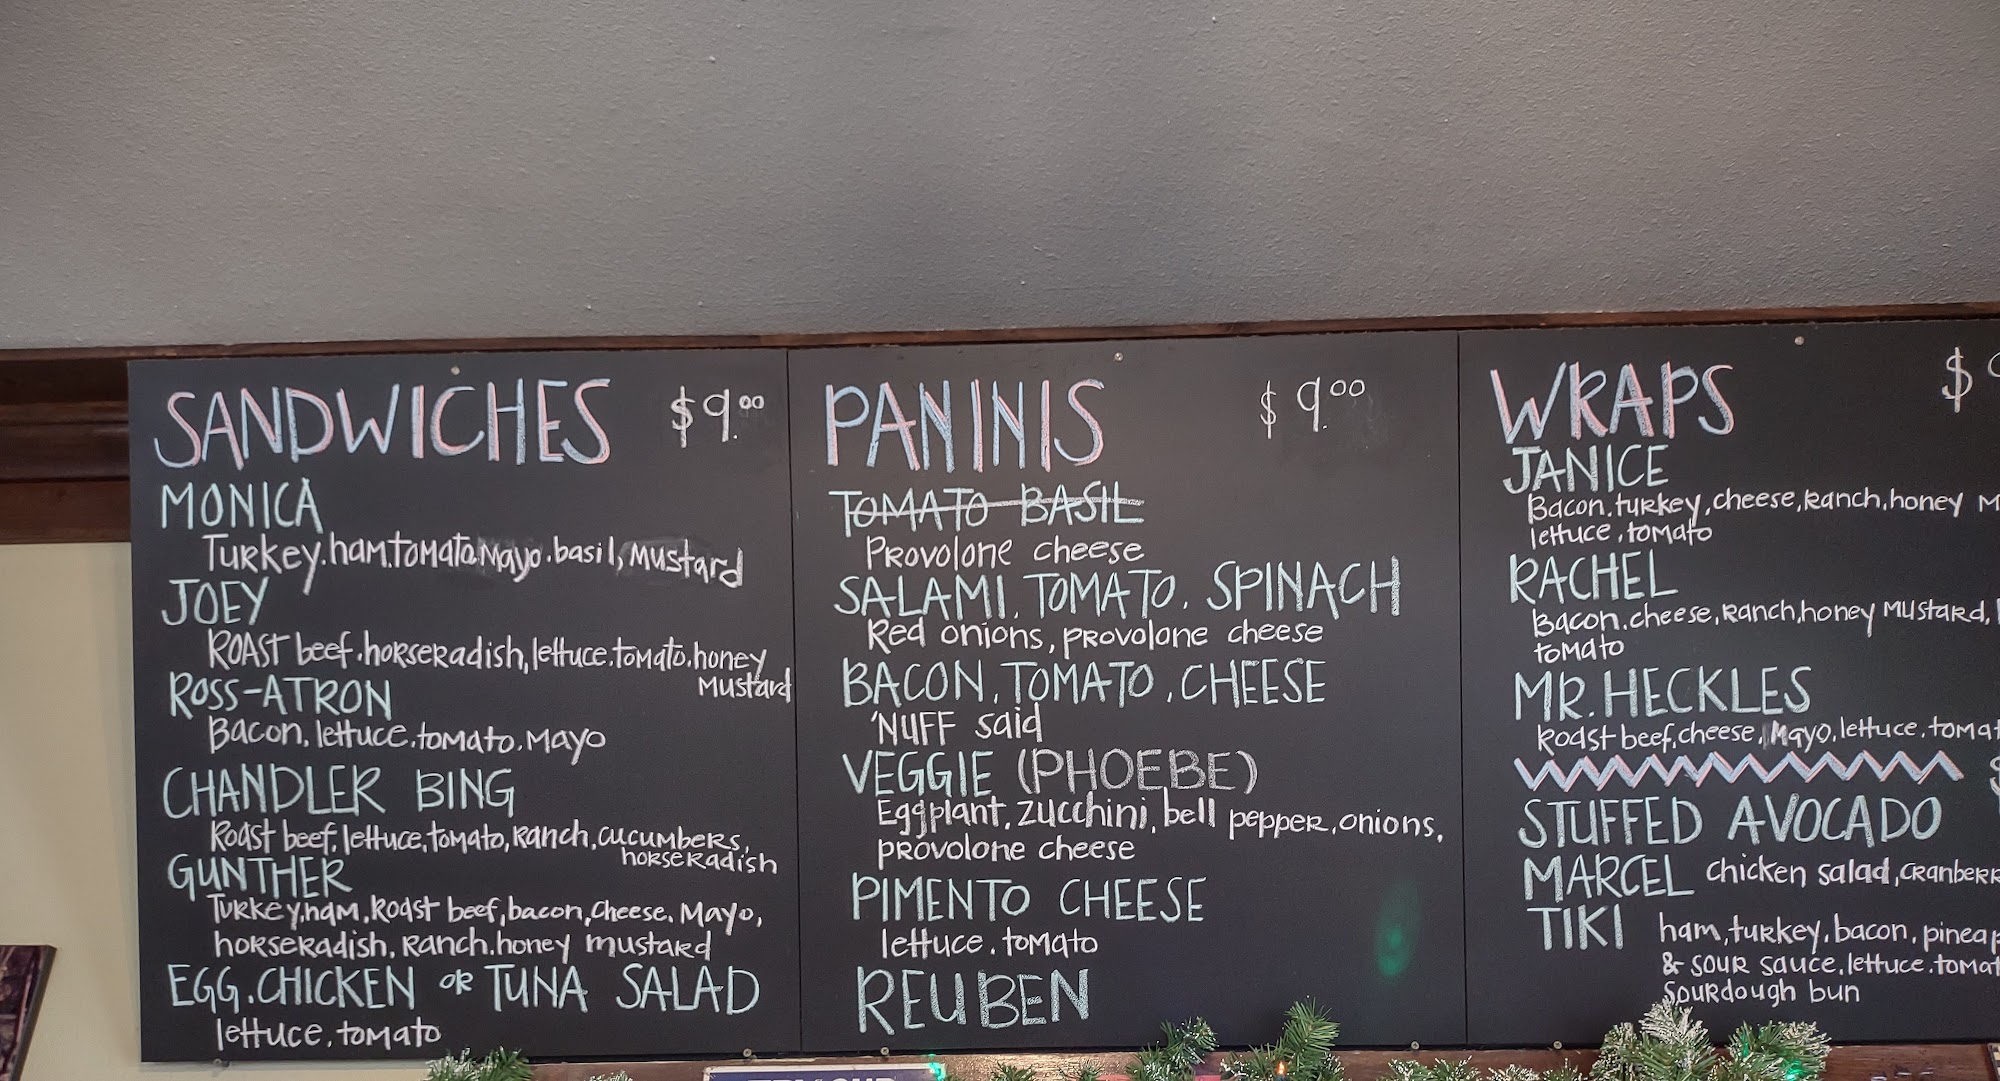 SANDWICHES $9.00
MONICA
Turkey, ham, tomato, mayo, basil, mustard
JOEY
Roast beef, horseradish, lettuce, tomato, honey
mustard
ROSS-ATRON
Bacon, lettuce, tomato, mayo
CHANDLER BING
Roast beef, lettuce, tomato, ranch, cucumbers,
horseradish
GUNTHER
Turkey, ham, roast beef, bacon, cheese, mayo,
horseradish, ranch, honey mustard
EGG, CHICKEN OR TUNA SALAD
lettuce, tomato
PANINIS $9.00
TOMATO BASIL
Provolone cheese
SALAMI, TOMATO, SPINACH
Red onions, provolone cheese
BACON, TOMATO, CHEESE
'NUFF said
VEGGIE (PHOEBE)
Eggplant, zucchini, bell pepper, onions,
provolone cheese
PIMENTO CHEESE
lettuce, tomato
REUBEN
WRAPS $
JANICE
Bacon, turkey, cheese, ranch, honey M
lettuce, tomato
RACHEL
Bacon, cheese, ranch, honey mustard,
tomato
MR. HECKLES
Roast beef, cheese, mayo, lettuce, tomat
$
STUFFED AVOCADO
MARCEL chicken salad, cranberr
TIKI ham, turkey, bacon, pineap
& sour sauce, lettuce, tomat
sourdough bun